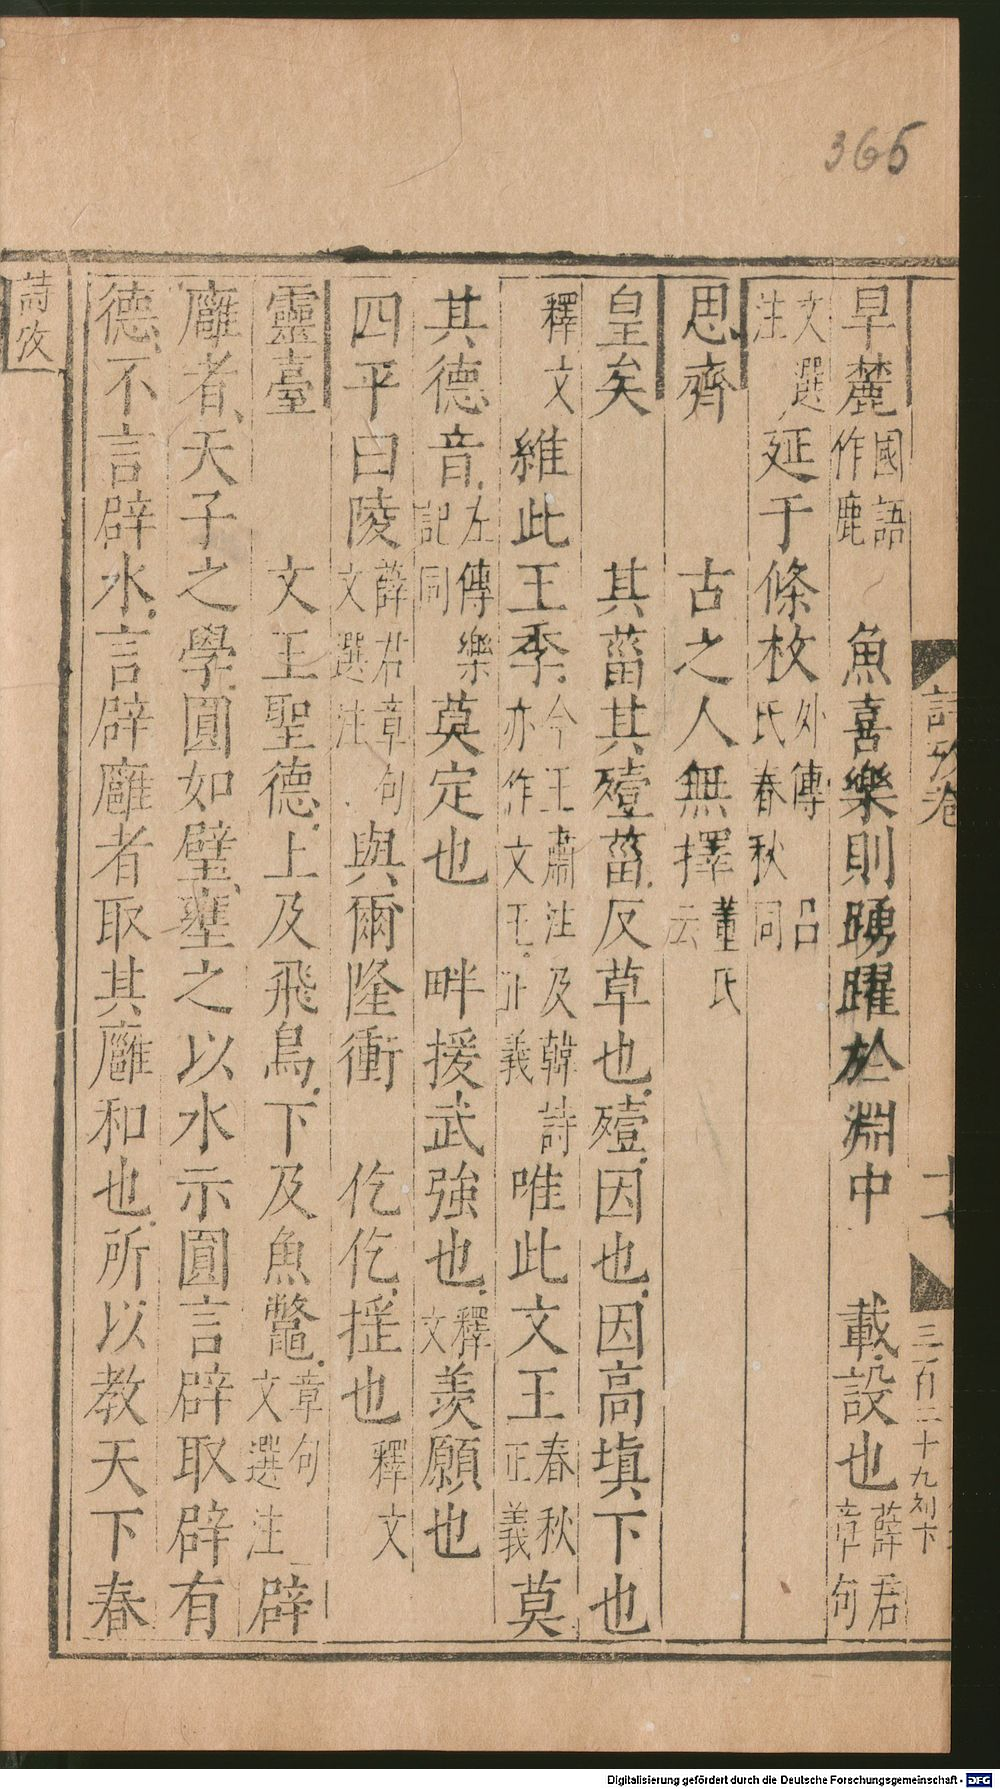 365
詩攷卷
十
三百二十九刘卞
早麓國語作鹿 魚喜樂則踴躍於淵中 載設也薛君章句
文選注 延于條枚外傳呂氏春秋同
思齊 古之人無擇董氏云
皇矣 其菑其殪菑反草也殪因也因高塡下也
釋文 維此王季今王肅注及韓詩亦作文王正義 唯此文王春秋正義 莫
其德音左傳樂記同 莫定也 畔援武強也釋文 羨願也
四平曰陵薛君章句文選注 與爾隆衝 仡仡搖也釋文
靈臺 文王聖德上及飛鳥下及魚鼈章句文選注 辟
廱者天子之學圓如璧壅之以水示圓言辟取辟有
德不言辟水言辟廱者取其廱和也所以教天下春
詩攷
Digitalisierung gefördert durch die Deutsche Forschungsgemeinschaft - DFG